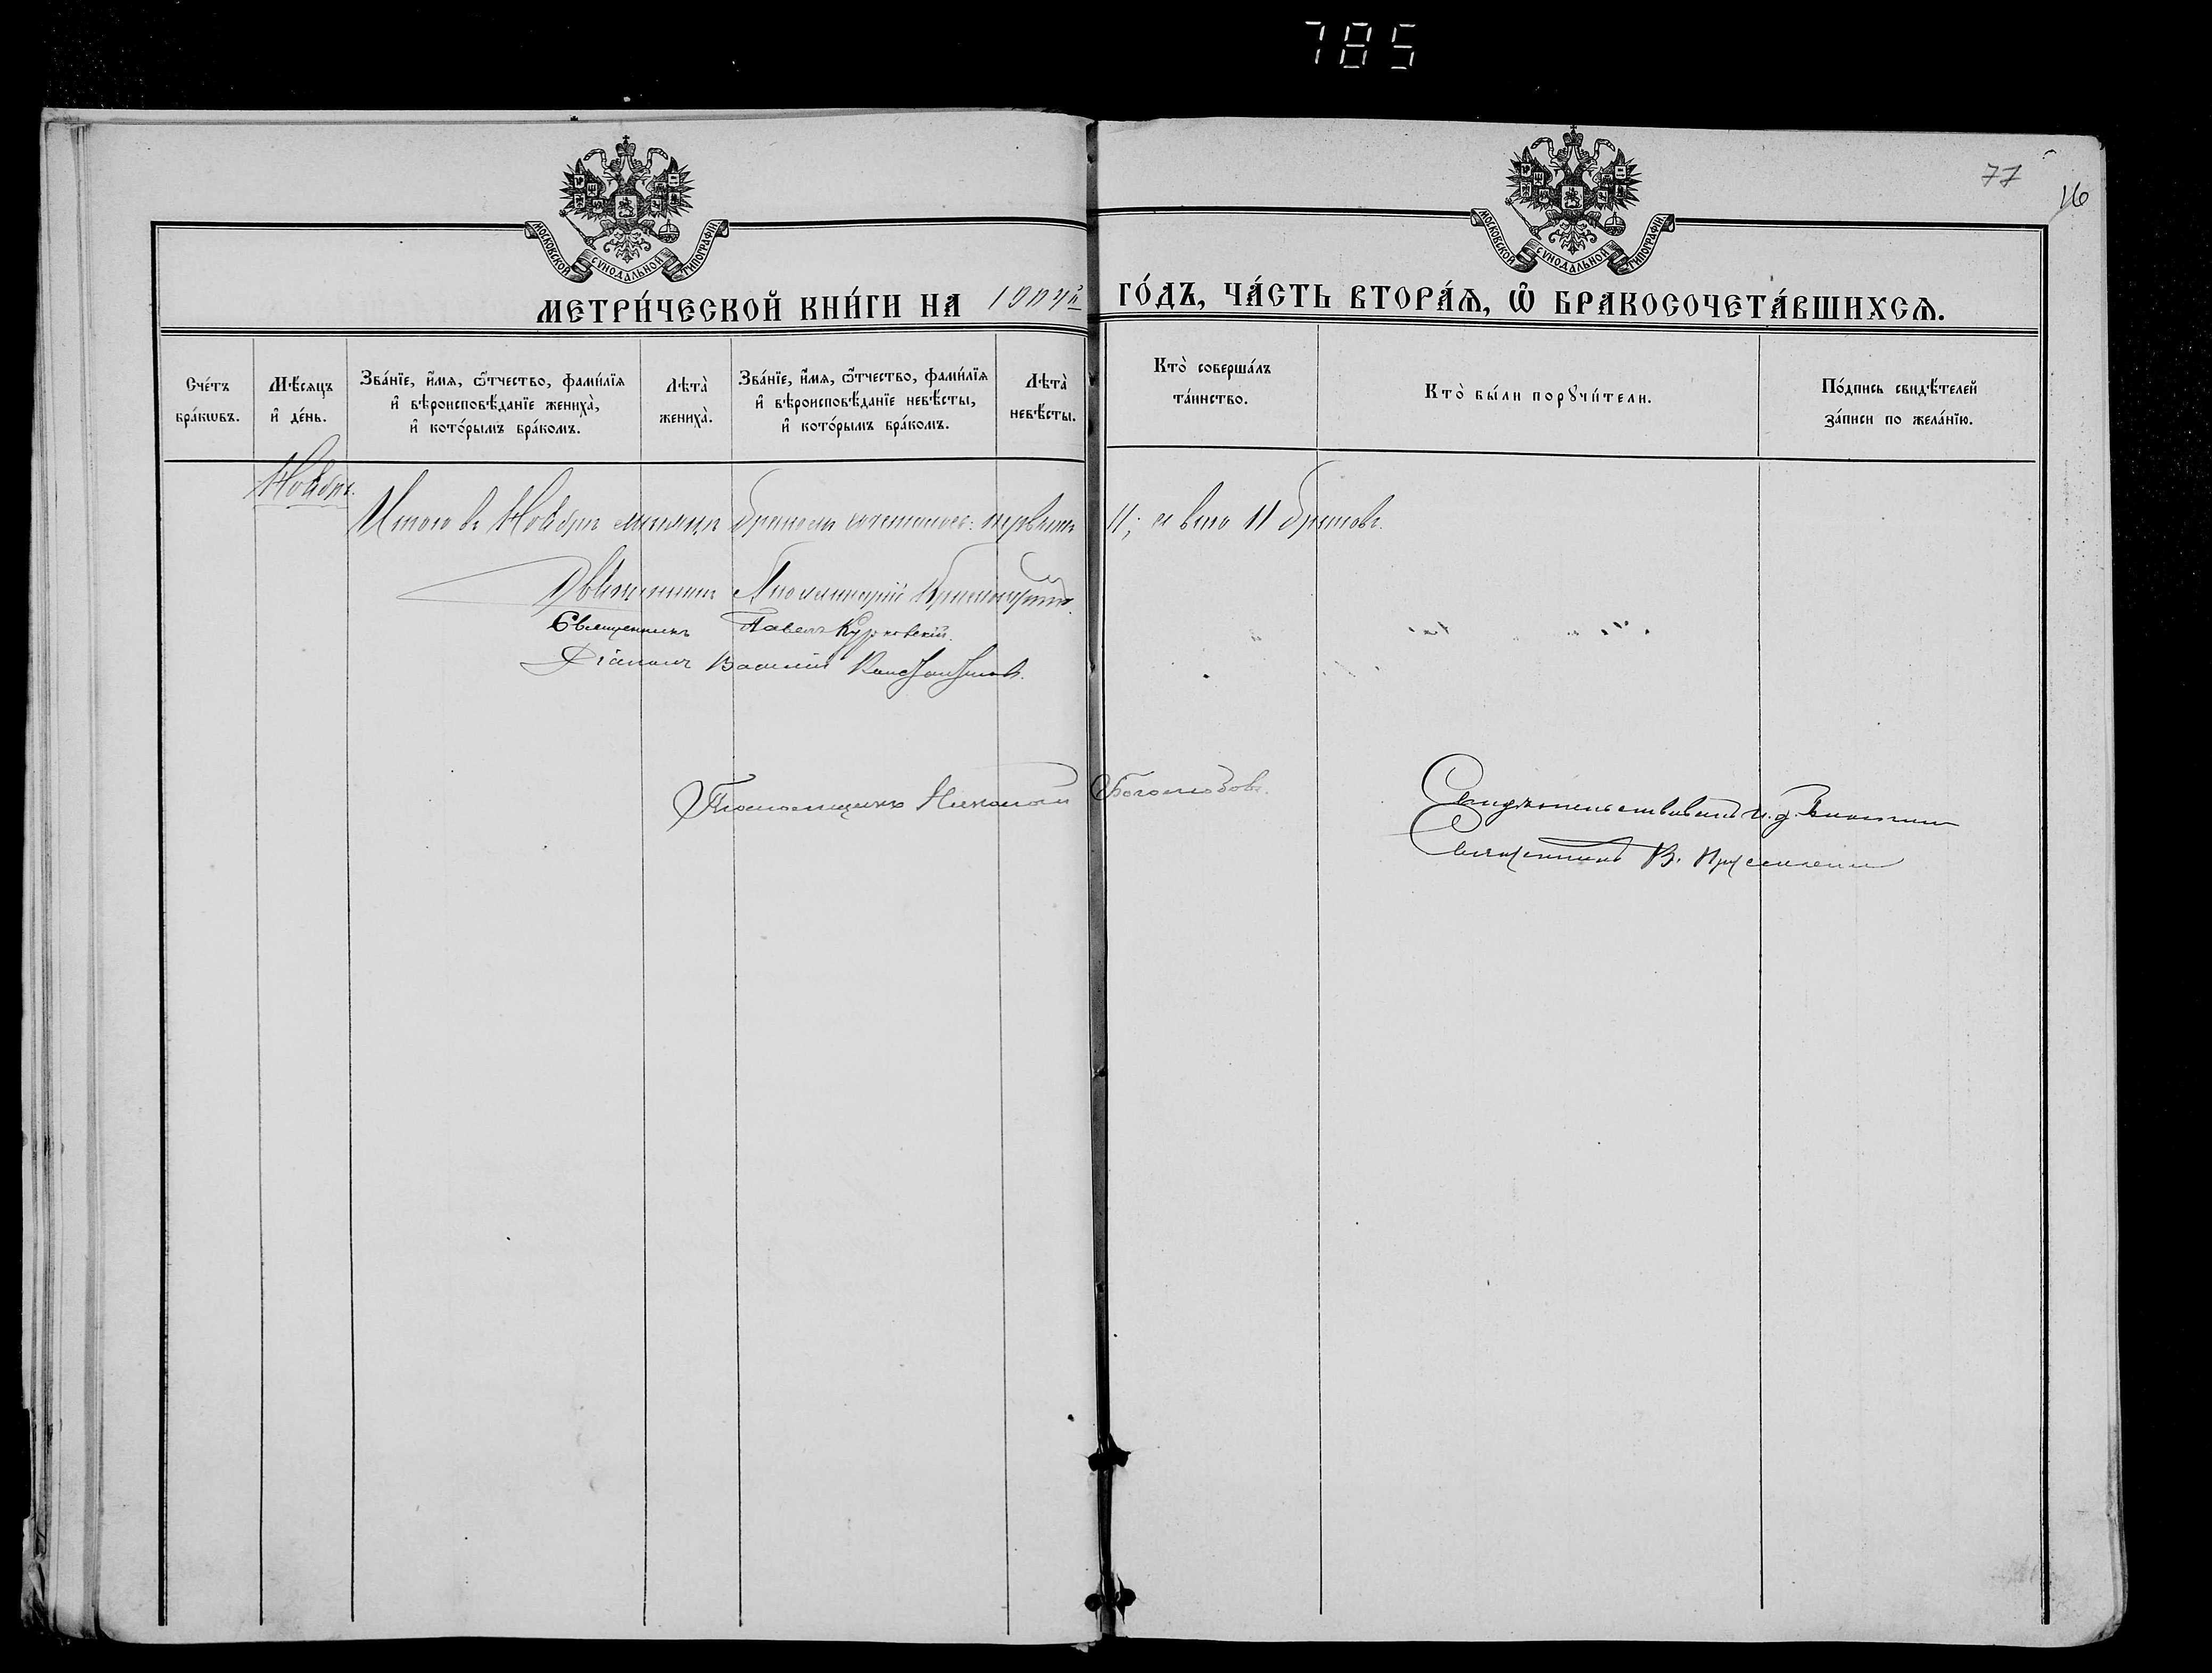 785
77
16
МОСКОВСКОЙ СѴНОДАЛЬНОЙ ТИПОГРАФІИ.
МОСКОВСКОЙ СѴНОДАЛЬНОЙ ТИПОГРАФІИ.
МЕТРИ́ЧЕСКОЙ КНИ́ГИ НА 1904й ГО́ДЪ, ЧА́СТЬ ВТОРА́Ѧ, Ѽ БРАКОСОЧЕТА́ВШИХСѦ.
Сче́тъ бра́кѡвъ.
Мѣ́сяцъ и҆ де́нь.
Зва́нїе, и҆́мя, ѻ҆́тчество, фами́лїя и҆ вѣроисповѣ́данїе жениха̀, и҆ кото́рымъ бра́комъ.
Лѣта̀ жениха̀.
Зва́нїе, и҆́мя, ѻ҆́тчество, фами́лїя и҆ вѣроисповѣ́данїе невѣ́сты, и҆ кото́рымъ бра́комъ.
Лѣта̀ невѣ́сты.
Кто̀ соверша́лъ та́инство.
Кто̀ бы́ли порꙋчи́тели.
По́дпись свидѣ́телей за́писи по жела́нїю.
Ноябрь.
Итого въ Ноябрѣ мѣсяцѣ браком сочеталось: первымъ 11; а всего 11 браковъ.
Священникъ Аполлинарій
Священникъ Павелъ Курковскій.
Діаконъ Василій Константиновъ.
Псаломщикъ Николай Боголюбовъ.
Свидѣтельствовалъ и. д. Благочин
Священникъ В.